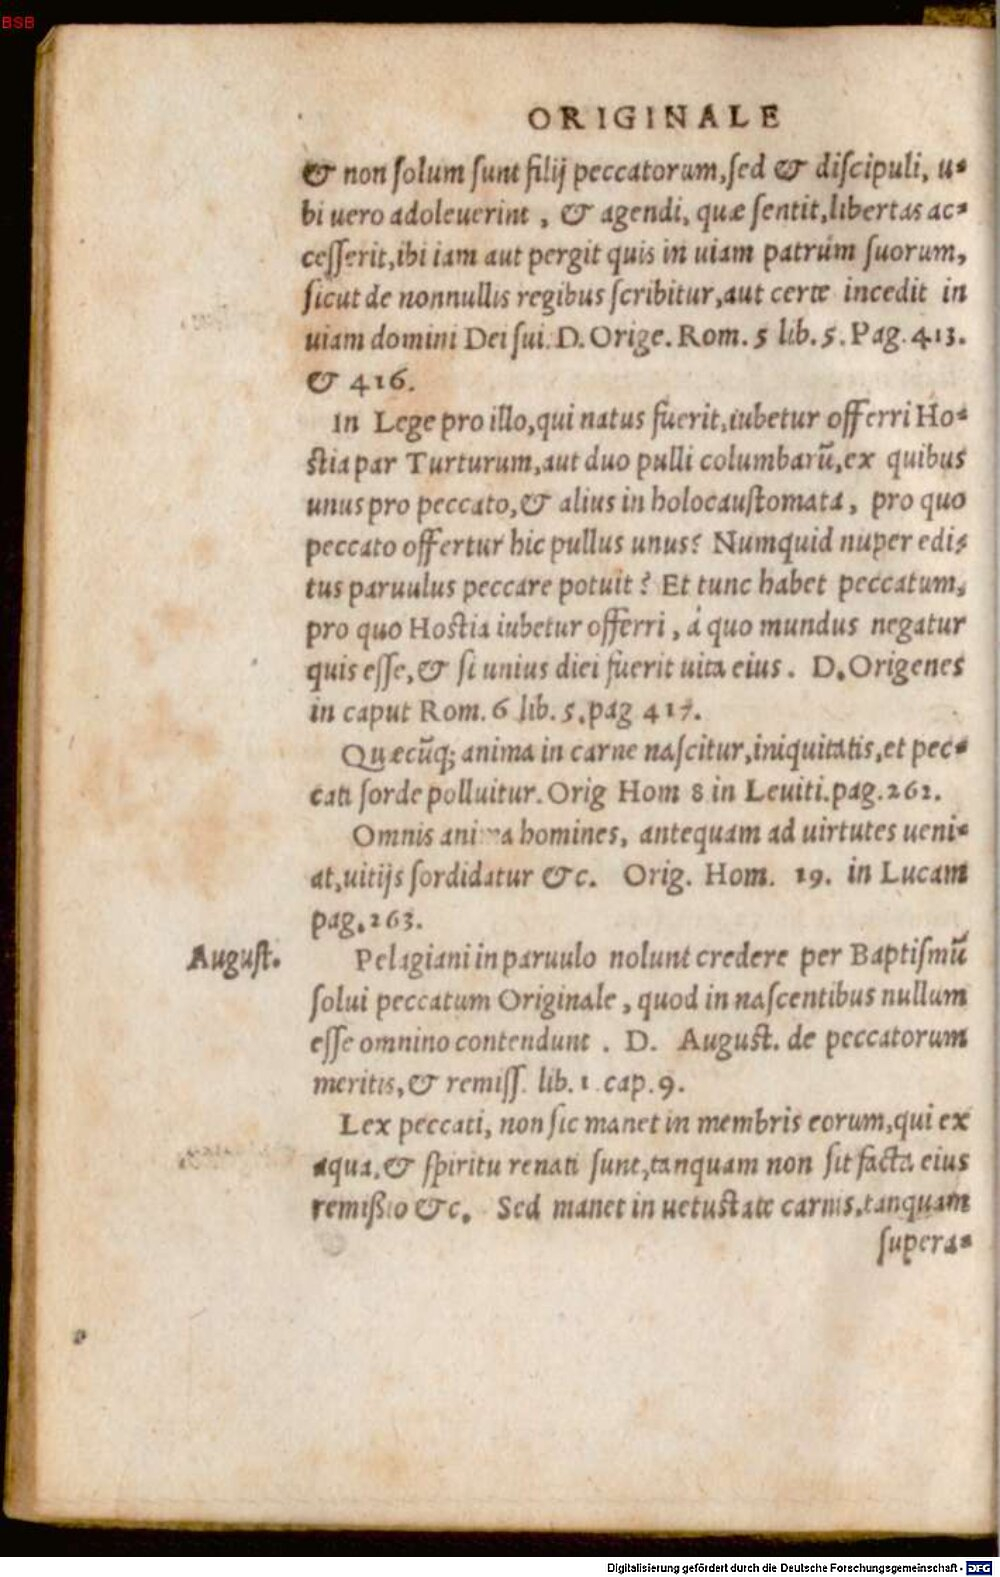 BSB
ORIGINALE
& non ſolum ſunt filij peccatorum, ſed & diſcipuli, u-
bi uero adoleuerint, & agendi, quæ ſentit, libertas ac-
ceſſerit, ibi iam aut pergit quis in uiam patrum ſuorum,
ſicut de nonnullis regibus ſcribitur, aut certe incedit in
uiam domini Dei ſui. D. Orige. Rom. 5 lib. 5. Pag. 413.
& 416.
In Lege pro illo, qui natus fuerit, iubetur offerri Ho-
ſtia par Turturum, aut duo pulli columbarũ, ex quibus
unus pro peccato, & alius in holocauſtomata, pro quo
peccato offertur hic pullus unus? Numquid nuper edi-
tus paruulus peccare potuit? Et tunc habet peccatum,
pro quo Hoſtia iubetur offerri, à quo mundus negatur
quis eſſe, & ſi unius diei fuerit uita eius. D. Origenes
in caput Rom. 6 lib. 5. pag 417.
Quæcũq; anima in carne naſcitur, iniquitatis, et pec-
cati ſorde polluitur. Orig Hom 8 in Leuiti. pag. 262.
Omnis anima homines, antequam ad uirtutes ueni-
at, uitijs ſordidatur &c. Orig. Hom. 19. in Lucam
pag. 263.
August.
Pelagiani in paruulo nolunt credere per Baptiſmũ
ſolui peccatum Originale, quod in naſcentibus nullum
eſſe omnino contendunt. D. Auguſt. de peccatorum
meritis, & remiſſ. lib. 1 cap. 9.
Lex peccati, non ſic manet in membris eorum, qui ex
aqua, & ſpiritu renati ſunt, tanquam non ſit facta eius
remißio &c. Sed manet in uetuſtate carnis, tanquam
ſupera-
Digitalisierung gefördert durch die Deutsche Forschungsgemeinschaft - DFG